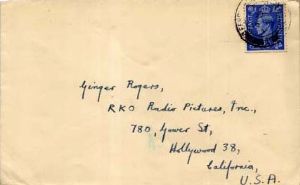 Ginger Rogers,
RKO Radio Pictures, Inc.,
780, Gower St,
Hollywood 38,
California,
U.S.A.